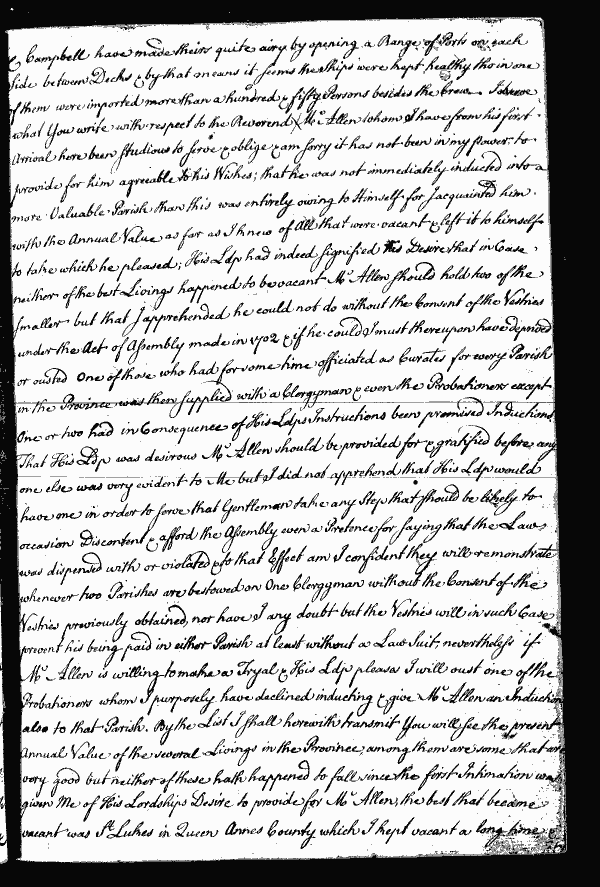 & Campbell have made theirs quite airy by opening a Range of Ports on each
side between Decks & by that means it seems the Ships were kept healthy tho in one
of them were imported more than a hundred & fifty Persons besides the Crew. I
what You write with respect to the Reverend Mr. Allen whom I have from his first
Arrival here been studious to serve & oblige & am sorry it has not been in my power to
provide for him agreeable to his Wishes; that he was not immediately inducted into a
more Valuable Parish than this was entirely owing to Himself for I acquainted him
with the Annual Value as far as I knew of All that were vacant & left it to himself
to take which he pleased; His Ldp had indeed signified his Desire that in Case
neither of the best Livings happened to be vacant Mr. Allen should hold two of the
smaller but that I apprehended he could not do without the Consent of the Vestries
under the Act of Assembly made in 1702 & if he could I must thereupon have deprived
or ousted One of those who had for some time officiated as Curates for every Parish
in the Province was then supplied with a Clergyman & even the Probationers except
One or two had in Consequence of His Ldps Instructions been promised Inductions
That His Ldp was desirous Mr. Allen should be provided for & gratified before any
one else was very evident to Me but I did not apprehend that His Ldp would
have one in order to serve that Gentleman take any Step that should be likely to
occasion Discontent & afford the Assembly even a Pretence for saying that the Law
was dispensed with or violated & to that Effect am I confident they will remonstrate
whenever two Parishes are bestowed on One Clergyman without the Consent of the
Vestries previously obtained, nor have I any doubt but the Vestries will in such Case
prevent his being paid in either Parish at least without a Law Suit; nevertheless if
Mr. Allen is willing to make a Tryal & His Ldp please I will oust one of the
Probationers whom I purposely have declined inducting & give Mr. Allen an Induction
also to that Parish. By the List I shall herewith transmit You will see the present
Annual Value of the several Livings in the Province, among them are some that are
very good but neither of these hath happened to fall since the first Intimation was
given Me of His Lordships Desire to provide for Mr. Allen, the best that became
vacant was St. Lukes in Queen Annes County which I kept vacant a long time &